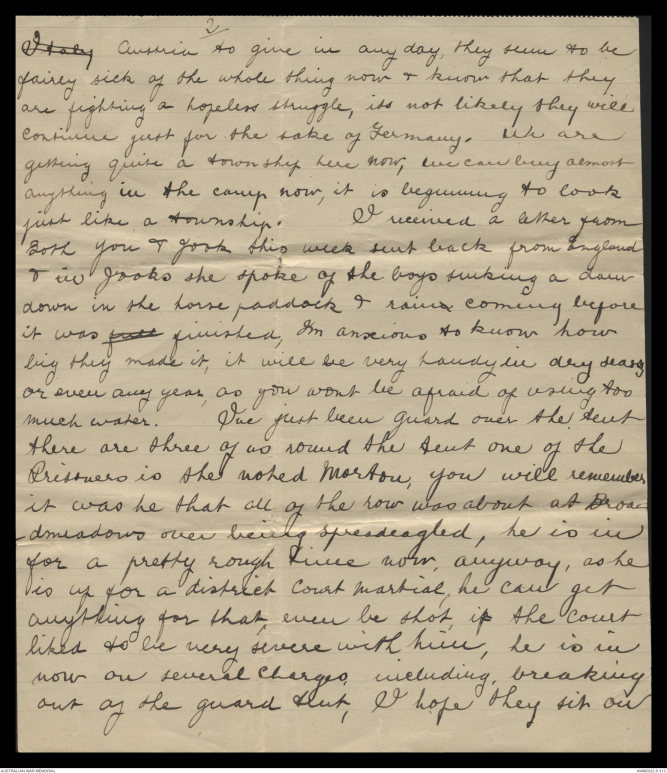 2
Italy Austria to give in any day, they seem to be
fairey sick of the whole thing now & know that they
are fighting a hopeless struggle, its not likely they will
continue just for the sake of Germany. We are
getting quite a township here now, we can buy almost
anything in the camp now, it is beginning to look
just like a township. I received a letter from
Both you & Jook this week sent back from England
& in Jooks she spoke of the boys sinking a dam
down in the horse paddock & rain coming before
it was finished, Im anxious to know how
big they made it, it will be very handy in dry seasn
or even any year, as you wont be afraid of using too
much water. I've just been guard over the tent
there are three of us round the tent one of the
Prisoners is the noted Morton, you will remember
it was he that all of the row was about at Broa-
-dmeadows over being spreadeagled, he is in
for a pretty rough time now, anyway, as he
is up for a district Court martial, he can get
anything for that, even be shot, if the court
liked to be very severe with him, he is in
now on several charges, including, breaking
out of the guard tent, I hope they sit on
AUSTRALIAN WAR MEMORIAL